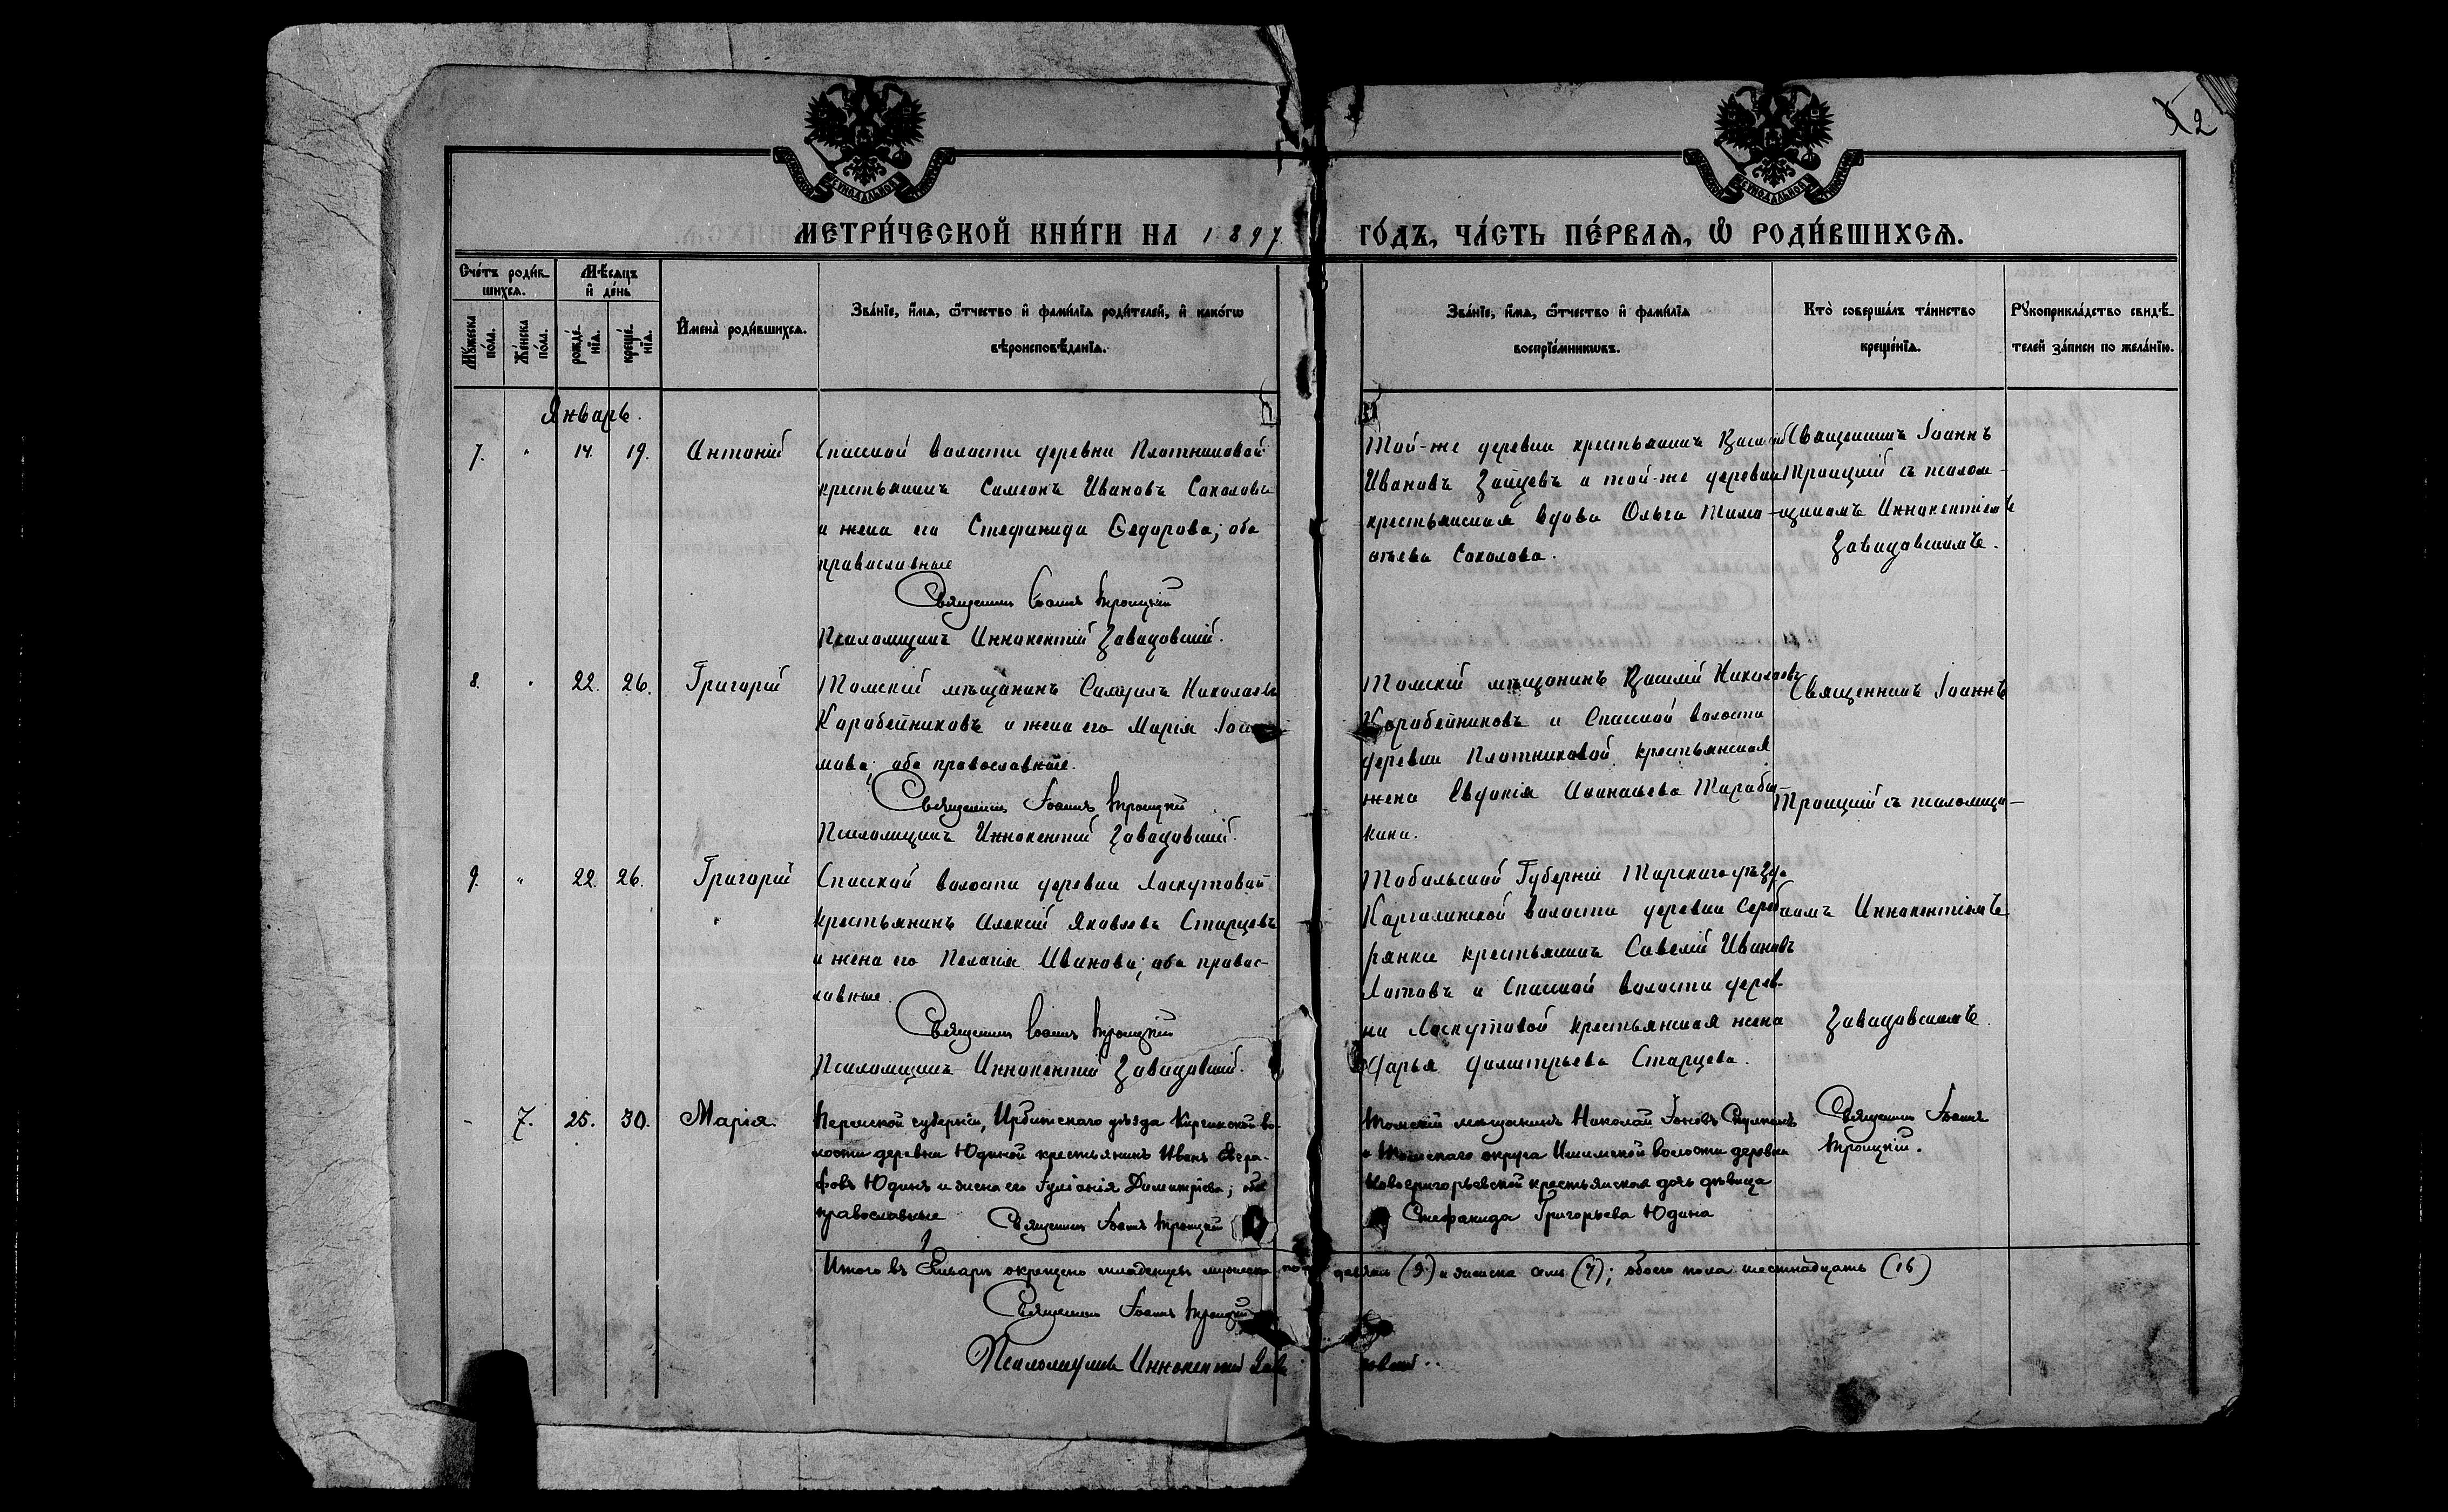 2
МЕТРИ́ЧЕСКОЙ КНИ́ГИ НА 1897 ГО́ДЪ, ЧА́СТЬ ПЕ́РВАѦ, Ѽ РОДИ́ВШИХСѦ.
Сче́тъ роди́в-
шихсѧ.
Мѣ́сѧцъ
и҆ де́нь
Мꙋ́жеска
по́ла.
Же́нска
по́ла.
рожде́-
нїѧ.
креще́-
нїѧ.
И҆мена̀ роди́вшихсѧ.
Зва́нїе, и҆́мѧ, ѻ҆́тчество и҆ фами́лїѧ роди́телей, и҆ како́гѡ
вѣроисповѣ́данїѧ.
Зва́нїе, и҆́мѧ, ѻ҆́тчество и҆ фами́лїѧ
воспрїе́мникѡвъ.
Кто̀ соверша́лъ та́инство
креще́нїѧ.
Рꙋкоприкла́дство свидѣ́-
телей за́писи по жела́нїю.
Январь.
7. " 14. 19. Антоній
Спасской волости деревни Плотниковой
крестьянинъ Симеонъ Ивановъ Соколовъ
и жена его Стефанида Ѳедорова; оба
православные
Священникъ Іоаннъ Троицкій
Псаломщикъ Иннокентій Завадовскій.
Той-же деревни крестьянинъ Василій
Ивановъ Зайцевъ и той-же деревни
крестьянская вдова Ольга Тимо-
ѳеева Соколова.
Священникъ Іоаннъ
Троицкій съ псалом-
щикомъ Иннокентіемъ
Завадовскимъ.
8. " 22. 26. Григорій
Томскій мѣщанинъ Самуилъ Николаевъ
Коробейниковъ и жена его Марія
мова; оба православные.
Священникъ Іоаннъ Троицкій
Псаломщикъ Иннокентій Завадовскій.
Томскій мѣщанинъ Василій Николаевъ
Коробейниковъ и Спасской волости
деревни Плотниковой крестьянская
жена Евдокія Аѳанасьева Тараба-
кина.
Священникъ Іоаннъ
Троицкій съ псаломщи-
9. " 22. 26. Григорій
Спасской волости деревни Лоскутовой
крестьянинъ Алексій Яковлевъ Старцевъ
и жена его Пелагія Иванова; оба правос-
лавные.
Священникъ Іоаннъ Троицкій
Псаломщикъ Иннокентій Завадовскій.
Тобольской Губерніи Тарскаго уѣзда
Каргалинской волости деревни Сереб-
рянки крестьянинъ Савелій Ивановъ
Лотовъ и Спасской волости дерев-
ни Лоскутовой крестьянская жена
Дарья Димитріева Старцева.
комъ Иннокентіемъ
Завадовскимъ.
- 7. 25. 30. Марія.
Пермской губерніи, Ирбитскаго уѣзда Киргинской во-
лости деревни Юдиной крестьянинъ Иванъ Евгра-
фовъ Юдинъ и жена его Іуліанія Димитріева; оба
православные Священникъ Іоаннъ Троицкій
Томскій мѣщанинъ Николай Іоновъ
и Томскаго округа Ишимской волости деревни
Новогригорьевской крестьянская дочь дѣвица
Стефанида Григорьева Юдина
Священникъ Іоаннъ
Троицкій.
Итого въ Январѣ окрещено младенцевъ мужеска пола девять (9) и женска семь (7); обоего пола шестнадцать (16)
Священникъ Іоаннъ Троицкій
Псаломщикъ Иннокентій